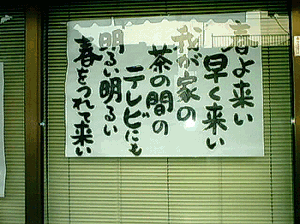 春よ来い
早く来い
我が家の
茶の間の
テレビにも
明るい明るい
春をつれて来い